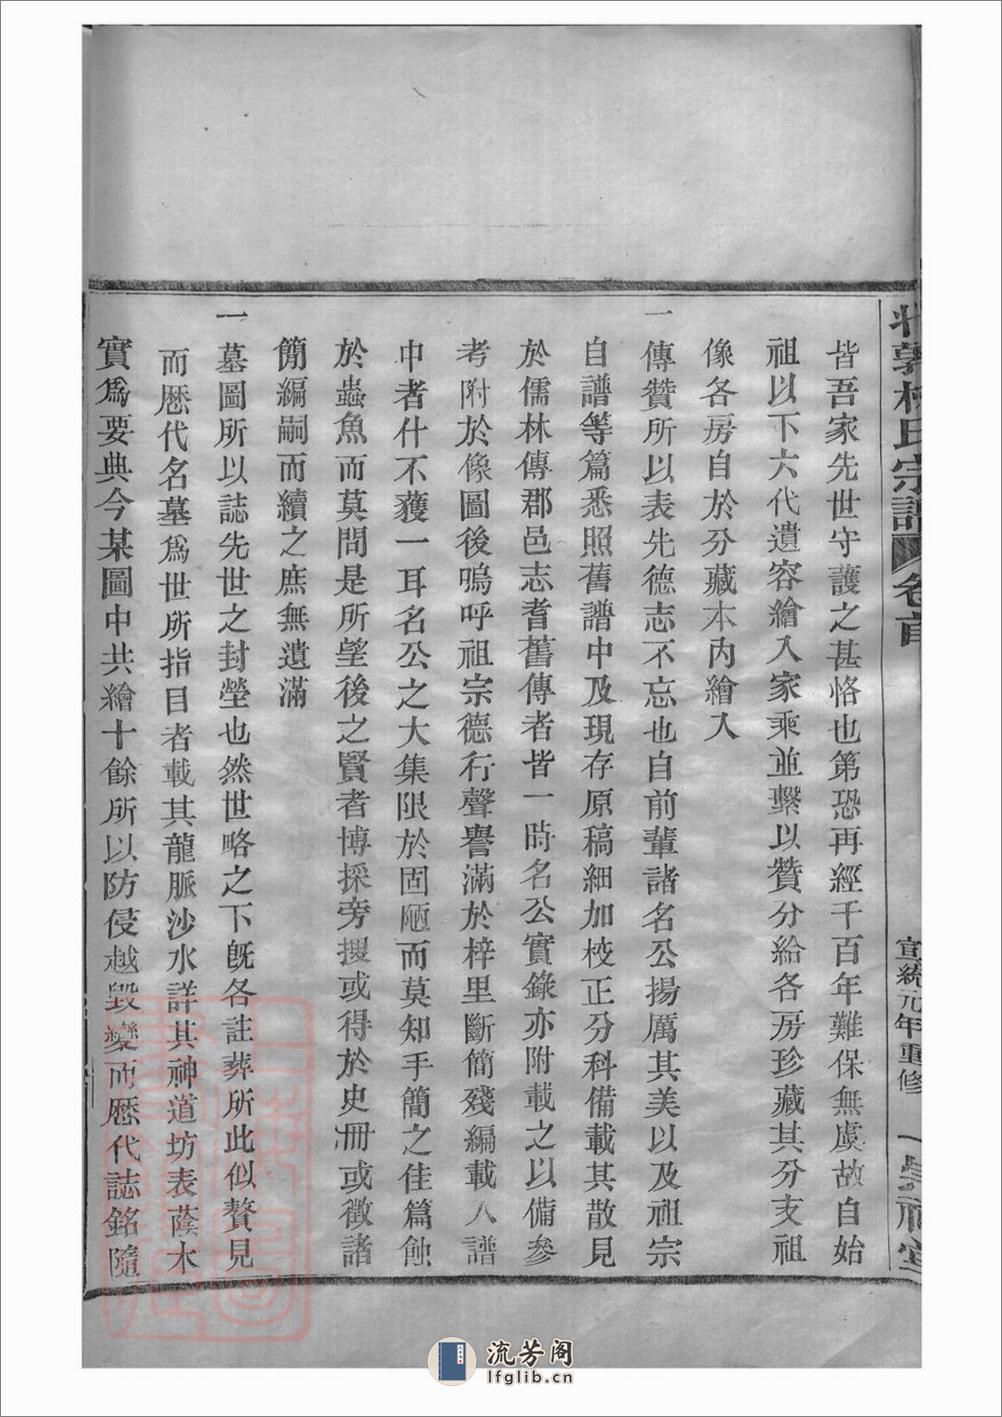 皆吾家先世守護之甚恪也第恐再經千百年難保無虞故自始
祖以下六代遺容繪入家乘並繫以贊分給各房珍藏其分支祖
像各房自於分藏本內繪入
一傳贊所以表先德志不忘也自前輩諸名公揚厲其美以及祖宗
自譜等篇悉照舊譜中及現存原稿細加校正分科備載其散見
於儒林傳郡邑志耆舊傳者皆一時名公實錄亦附載之以備參
考附於像圖後嗚呼祖宗德行聲譽滿於梓里斷簡殘編載入譜
中者什不獲一耳名公之大集限於固陋而莫知手簡之佳篇蝕
於蟲魚而莫問是所望後之賢者博採旁搜或得於史冊或徵諸
簡編嗣而續之庶無遺滿
一墓圖所以誌先世之封塋也然世略之下既各註葬所此似贅見
而歷代名墓爲世所指目者載其龍脈沙水詳其神道坊表蔭木
實爲要典今某圖中共繪十餘所以防侵越毀變而歷代誌銘隨
氏宗譜 卷首
宣統元年重修
流芳阁
lfglib.cn